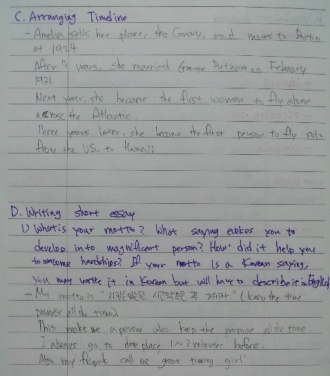 C. Arranging Timeline
- Amelia sells her plane, the Canary, and moves to Boston
at 1924
After 7 years, she married George Putnam on February
1931
Next year, she became the first women to fly alone
across the Atlantic
Three years later, she became the first person to fly solo
from the US. to Hawaii
D. Writing short essay
1) What is your motto? What saying evokes you to
develop into magnificent person? How did it help you
to overcome hardships? If your motto is a Korean saying,
You may write it in Korean but will have to describe it in English
- My motto is " 시간약속은 꼭 지키자" (keep the time
promise all the time)
This make me a person who keep the promise all the time
I always go to date place 1~2 minutes before.
Also my friends call me great timing girl